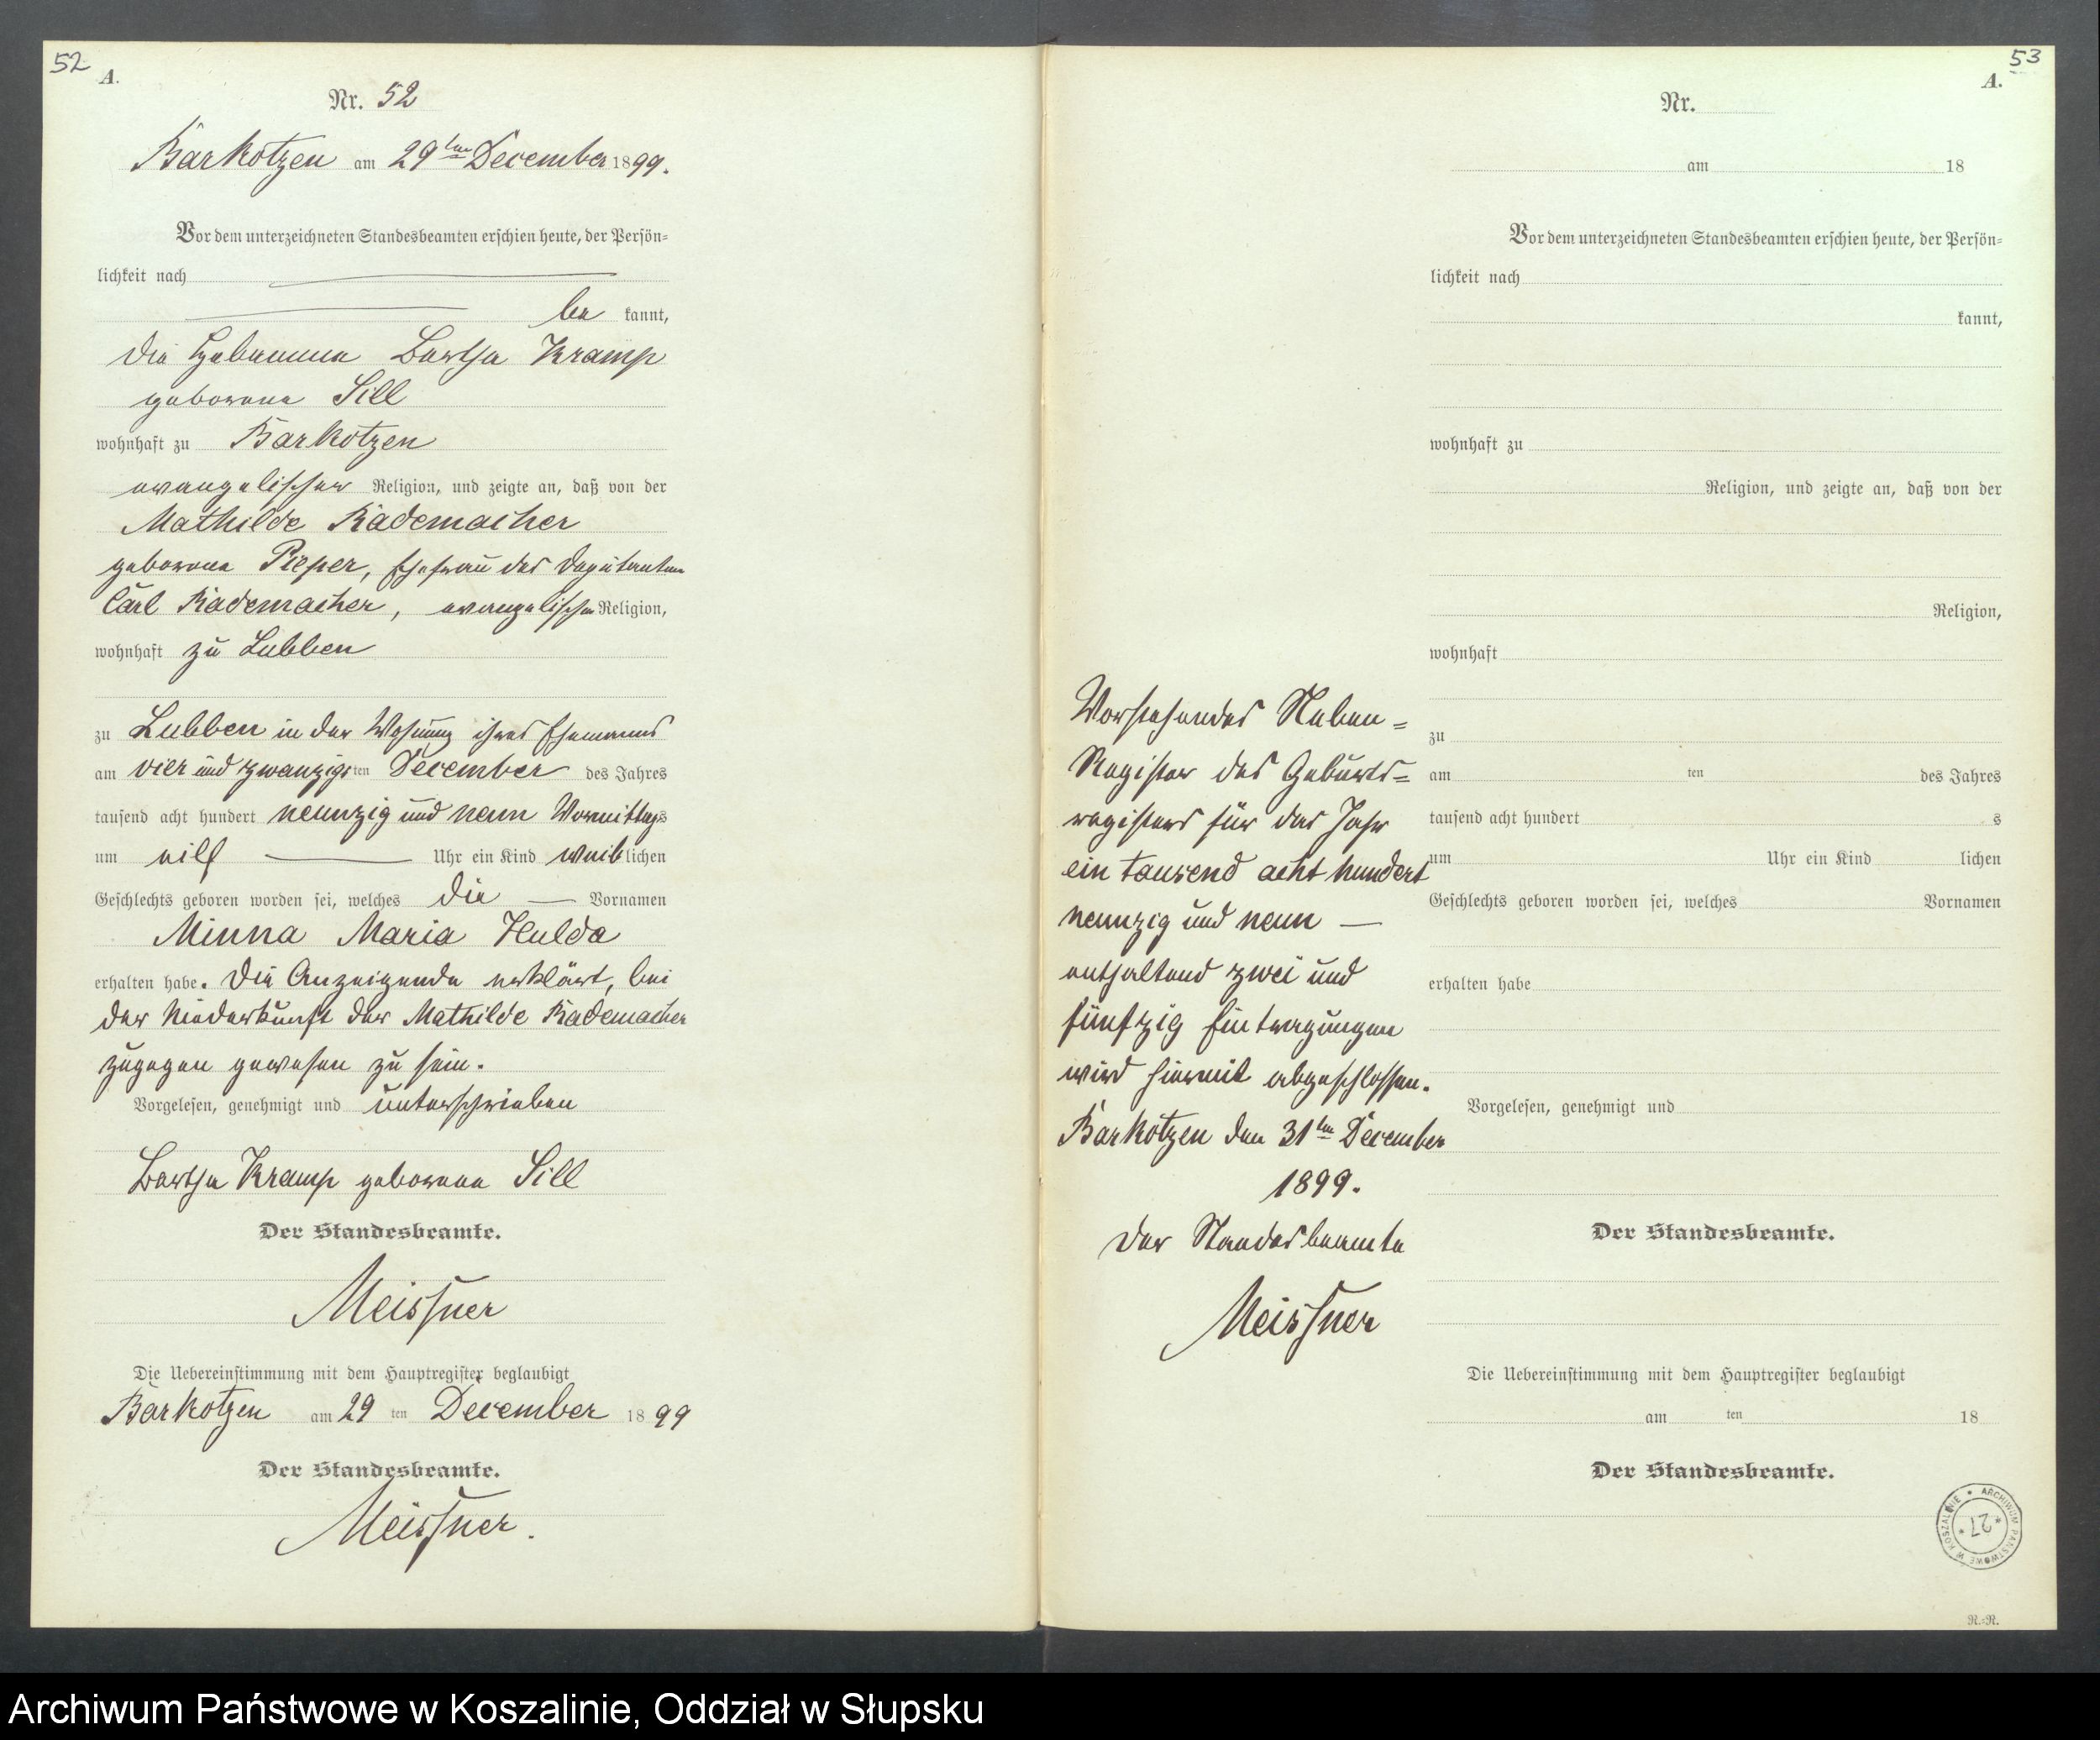 52
A.
Nr. 52
Barkotzen am 29ten December 1899.
Vor dem unterzeichneten Standesbeamten erschien heute, der Persön=
lichkeit nach
be kannt,
die Hebamme Bertha Kramp
geborene Sill
wohnhaft zu Barkotzen
evangelischer Religion, und zeigte an, daß von der
Mathilde Rademacher
geborene Pieper, Ehefrau des Deputanten
Carl Rademacher, evangelischer Religion,
wohnhaft zu Lubben
zu Lubben in der Wohnung ihres Ehemanns
am vier und zwanzigsten December des Jahres
tausend acht hundert neunzig und neun Vormittags
um eilf Uhr ein Kind weiblichen
Geschlechts geboren worden sei, welches die Vornamen
Minna Maria Hulda
erhalten habe. Die Anzeigende erklärt, bei
der Niederkunft der Mathilde Rademacher
zugegen gewesen zu sein.
Vorgelesen, genehmigt und unterschrieben
Bertha Kramp geborene Sill
Der Standesbeamte.
Meissner
Die Uebereinstimmung mit dem Hauptregister beglaubigt
Barkotzen am 29 ten December 1899
Der Standesbeamte.
Meissner.
53
A.
Nr.
am 18
Vor dem unterzeichneten Standesbeamten erschien heute, der Persön=
lichkeit nach
kannt,
wohnhaft zu
Religion, und zeigte an, daß von der
Religion,
wohnhaft
zu
am ten des Jahres
tausend acht hundert s
um Uhr ein Kind lichen
Geschlechts geboren worden sei, welches Vornamen
erhalten habe
Vorgelesen, genehmigt und
Der Standesbeamte.
Die Uebereinstimmung mit dem Hauptregister beglaubigt
am ten 18
Der Standesbeamte.
Vorstehendes Neben=
Register des Geburts=
registers für das Jahr
ein tausend acht hundert
neunzig und neun
enthaltend zwei und
fünfzig Eintragungen
wird hiermit abgeschlossen.
Barkotzen den 31ten December
1899.
Der Standesbeamte
Meissner
ARCHIWUM PAŃSTWOWE W KOSZALINIE
* 27 *
R.-R.
Archiwum Państwowe w Koszalinie, Oddział w Słupsku